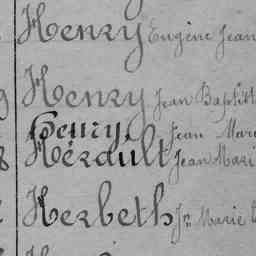 Henry Eugène Jean
9 Henry Jean Baptist
Henry Jean Mari
8 Hérault Jean Mari
Herbeth Jn Marie